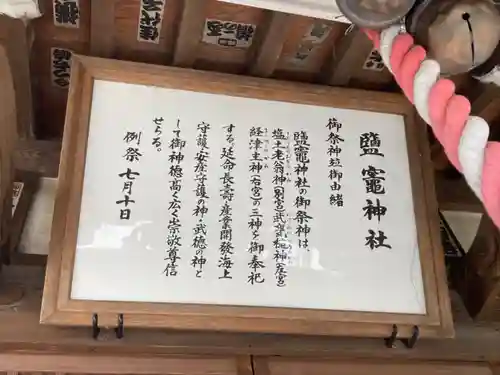 鹽竈神社
御祭神並御由緒
鹽竈神社の御祭神は、
塩土老翁神(別宮)武甕槌神(左宮)
経津主神(右宮)の三神を御奉祀
する。延命長壽産業開發海上
守護・安産守護の神・武徳の神と
して御神徳高く広く崇敬尊信
せらる。
例祭 七月十日